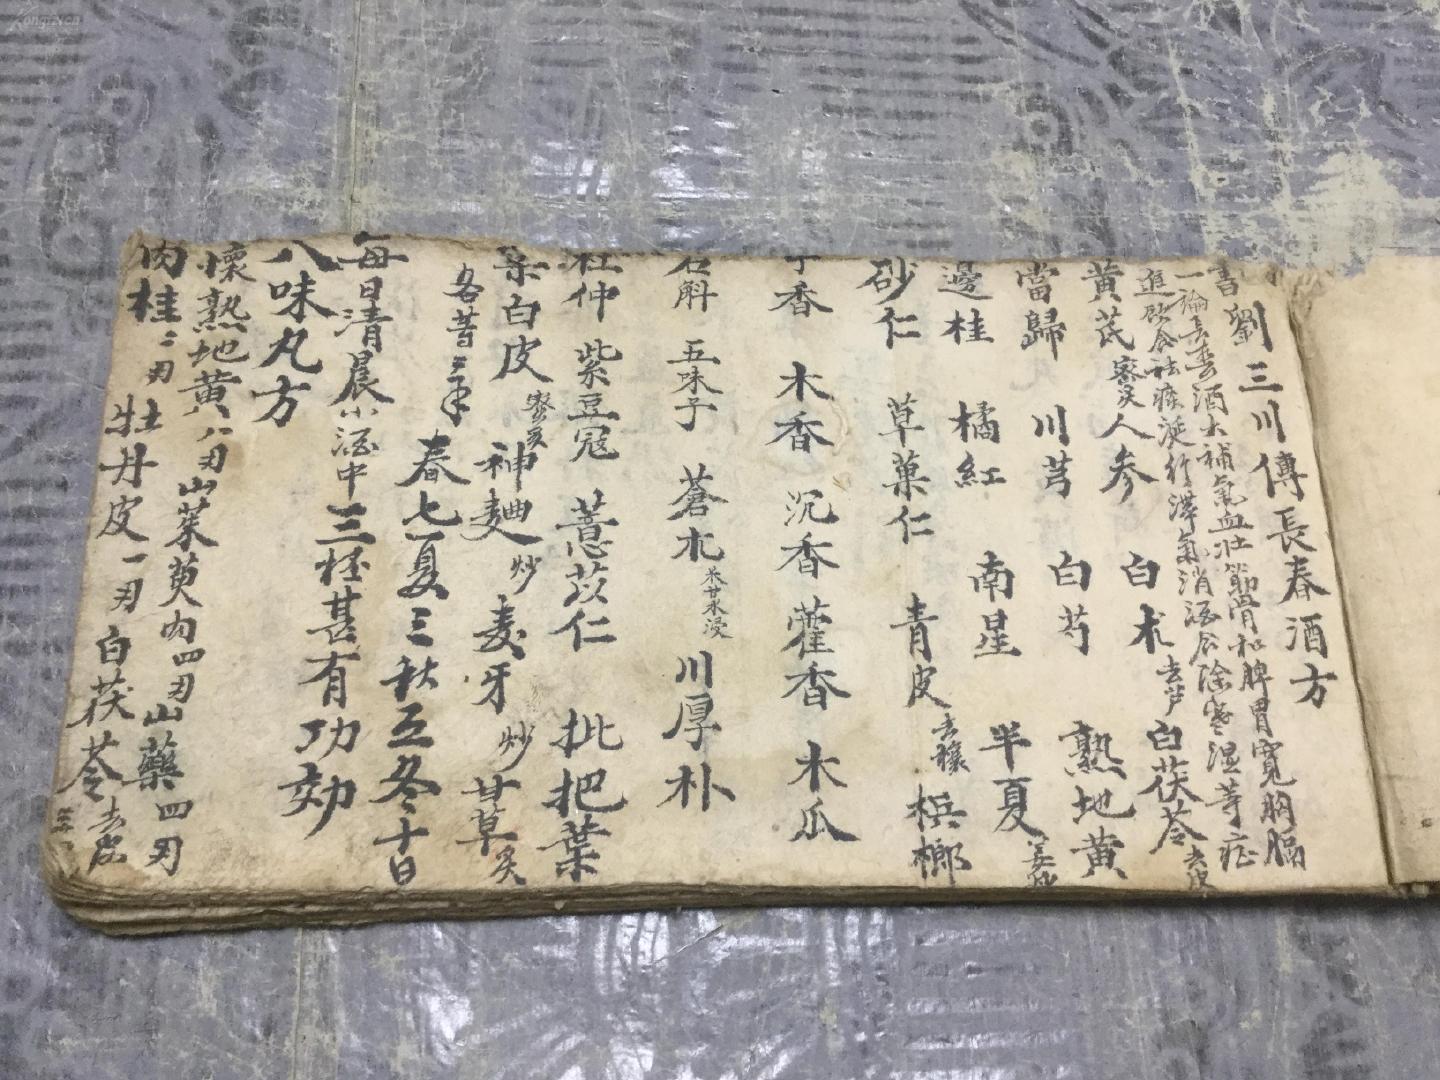 劉三川傳長春酒方
一論長春酒大補氣血壯筋骨和脾胃寬胸膈
進飲食祛痰涎行滯氣消酒谷除寒濕等症
黃芪 蜜炙 人参 白术 去芦 白茯苓 去皮
當歸 川芎 白芍 熟地黃
邊桂 橘紅 南星 半夏 姜炒
砂仁 草菓仁 青皮 去穰 梹榔
丁香 木香 沉香 藿香 木瓜
石斛 五味子 蒼朮 米甘水浸 川厚朴
杜仲 紫豆寇 薏苡仁 批把葉
桑白皮 蜜炙 神麯 炒 麦牙 炒 甘草 炙
各昔三丰 春七夏三秋五冬十日
每日清晨小酒中三桮甚有功効
八味丸方
懷熟地黃 八刄 山茱萸肉四刄 山藥四刄
肉桂二刄 牡丹皮一刄 白茯苓 去皮